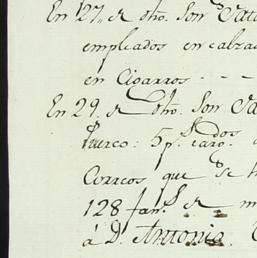 En 27,, de dho. Son
empleados en calza
en Cigarros - - -
En 29. de dho. Son
Puerco: 5 p.s
Correos que Se
128 fan.s de m
á D.n Antonio.